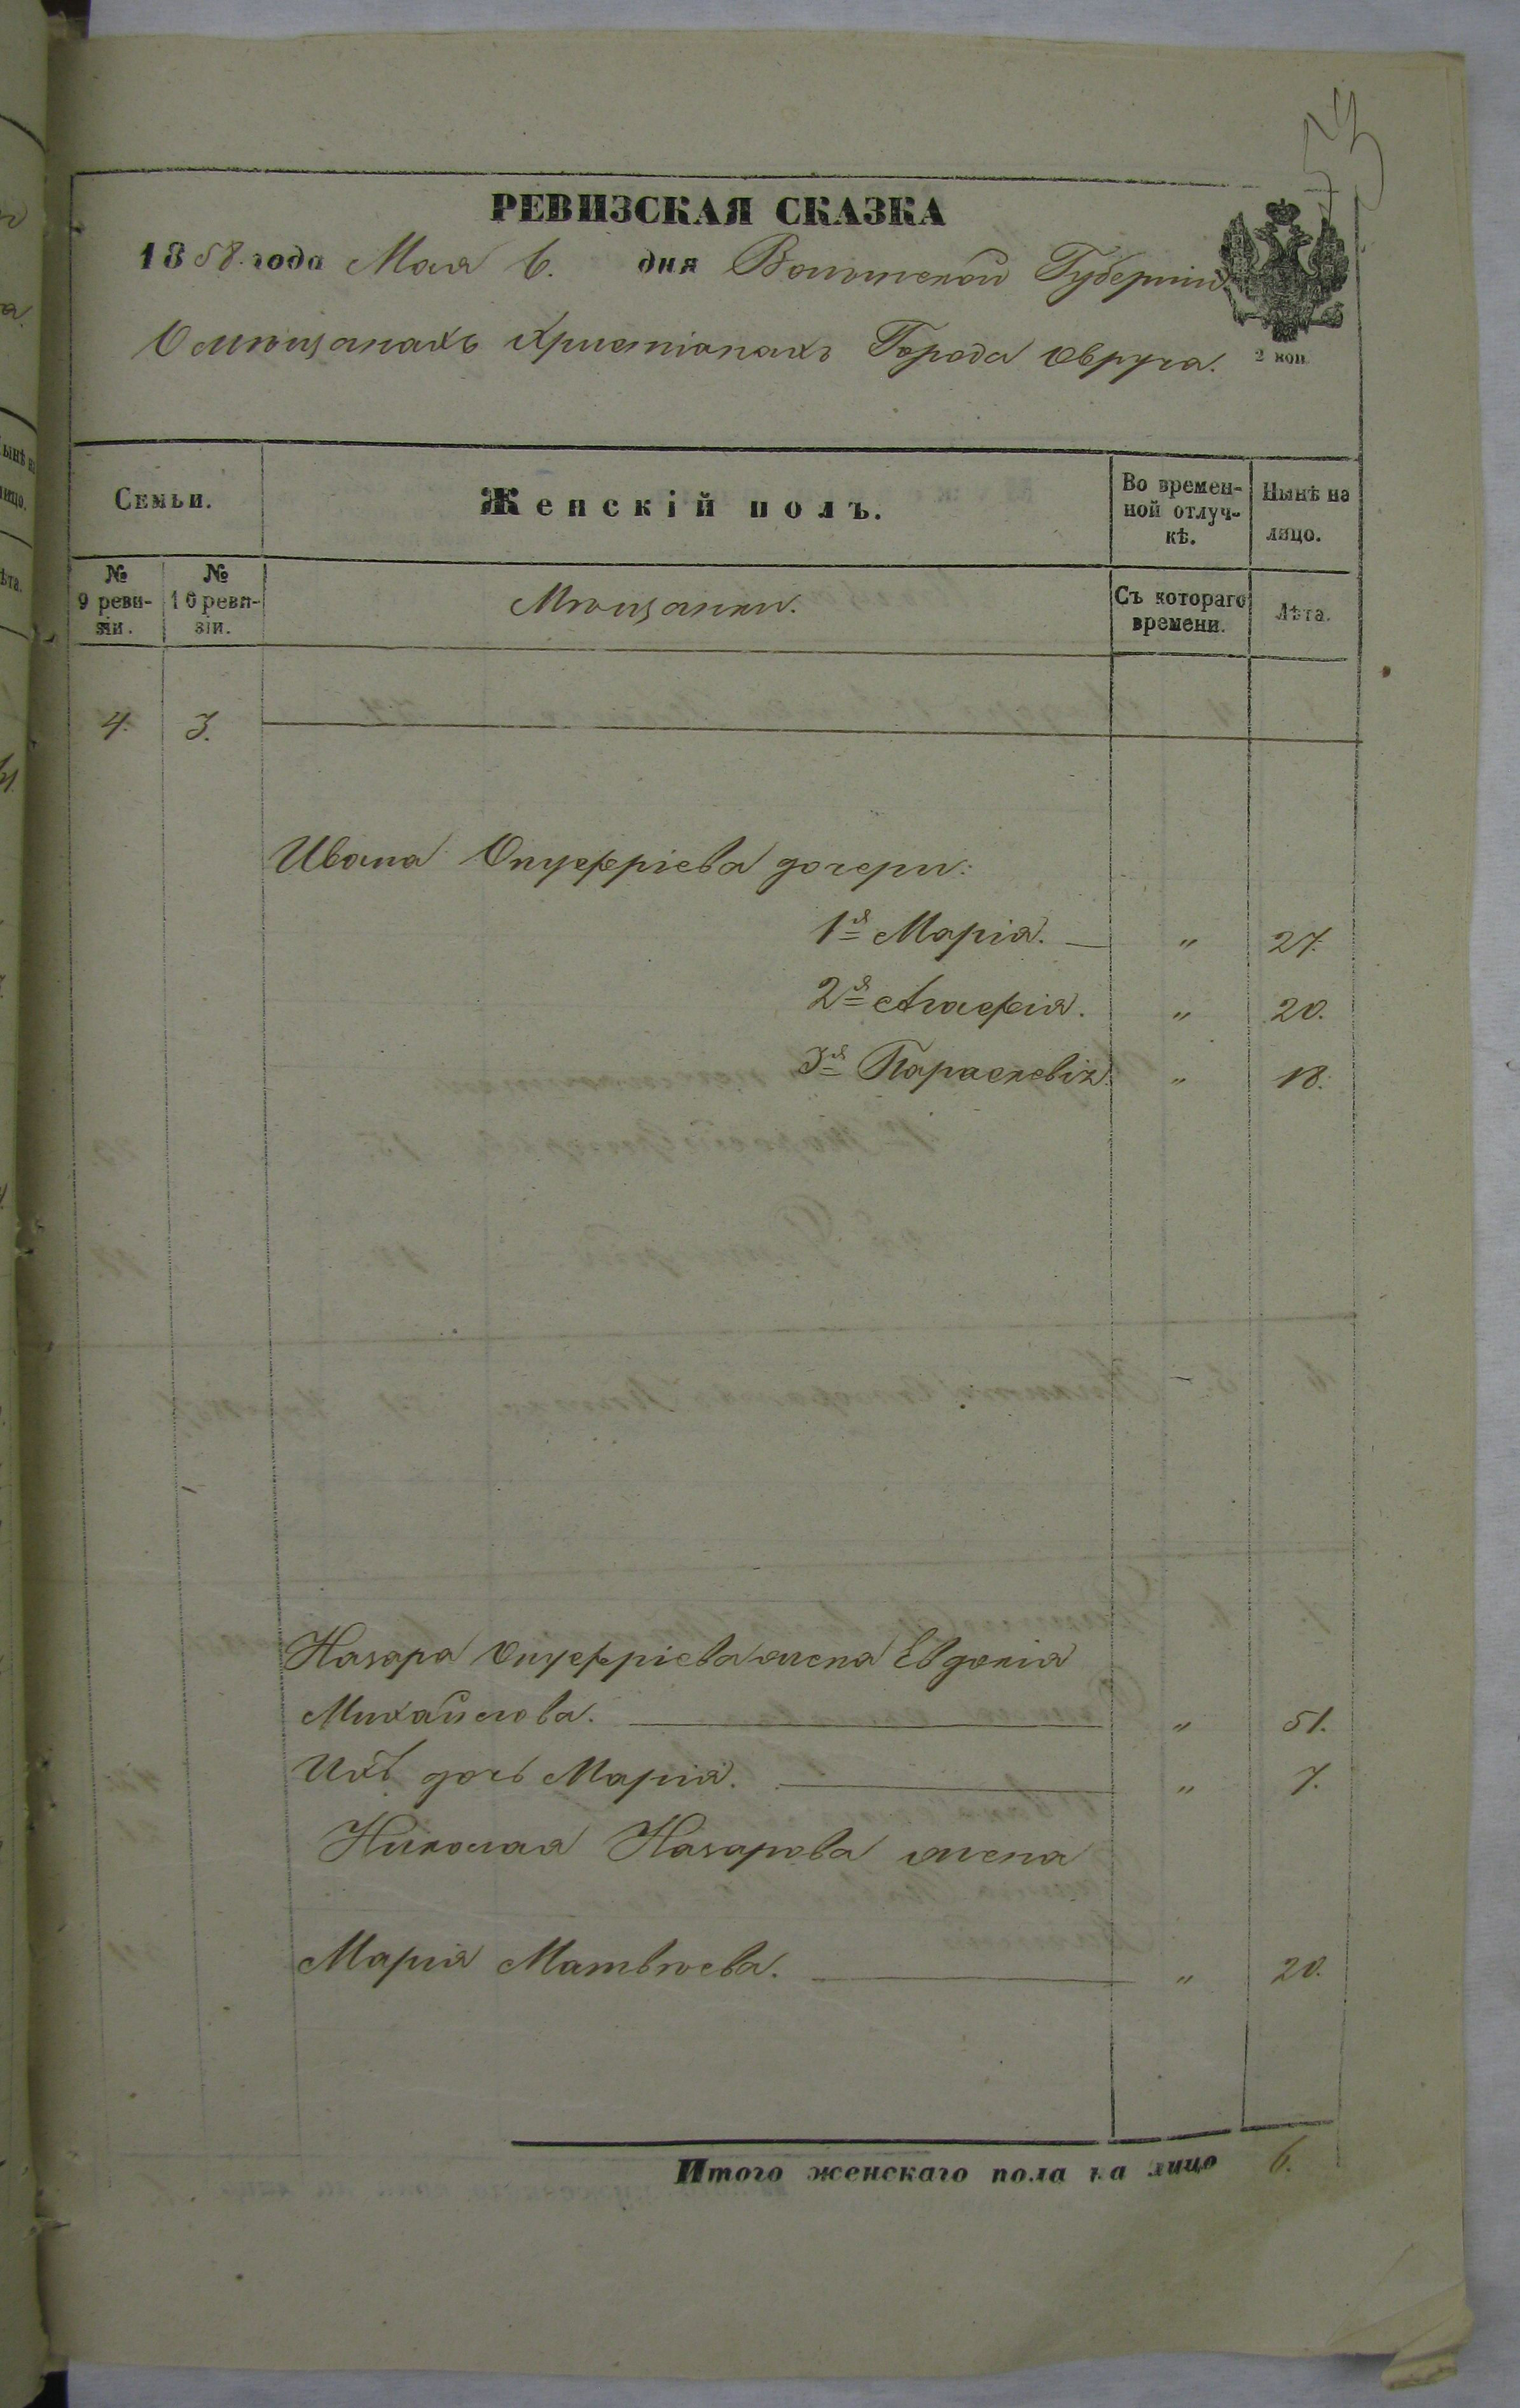 РЕВИЗСКАЯ СКАЗКА
1858 года Мая 6. дня Волынской Губерніи
О мѣщанахъ христіанахъ Города Овруча.
2 коп
Семьи.
Женскій полъ.
Во времен-
ной отлуч-
кѣ.
Нынѣ на
лицо.
№
9 реви-
зіи.
№
10 реви-
зіи.
Мѣщанки.
Съ котораго
времени.
Лѣта.
4. 3.
Ивана Онуфріева дочери:
1я Марія. — " 27.
2я Агафія. " 20.
3я Параскевія " 18.
Назара Онуфріева жена Евдокія
Михайлова. — " 51.
Ихъ дочь Марія. — " 7.
Николая Назарова жена
Марія Матвѣева. — " 20.
Итого женскаго пола на лицо 6.